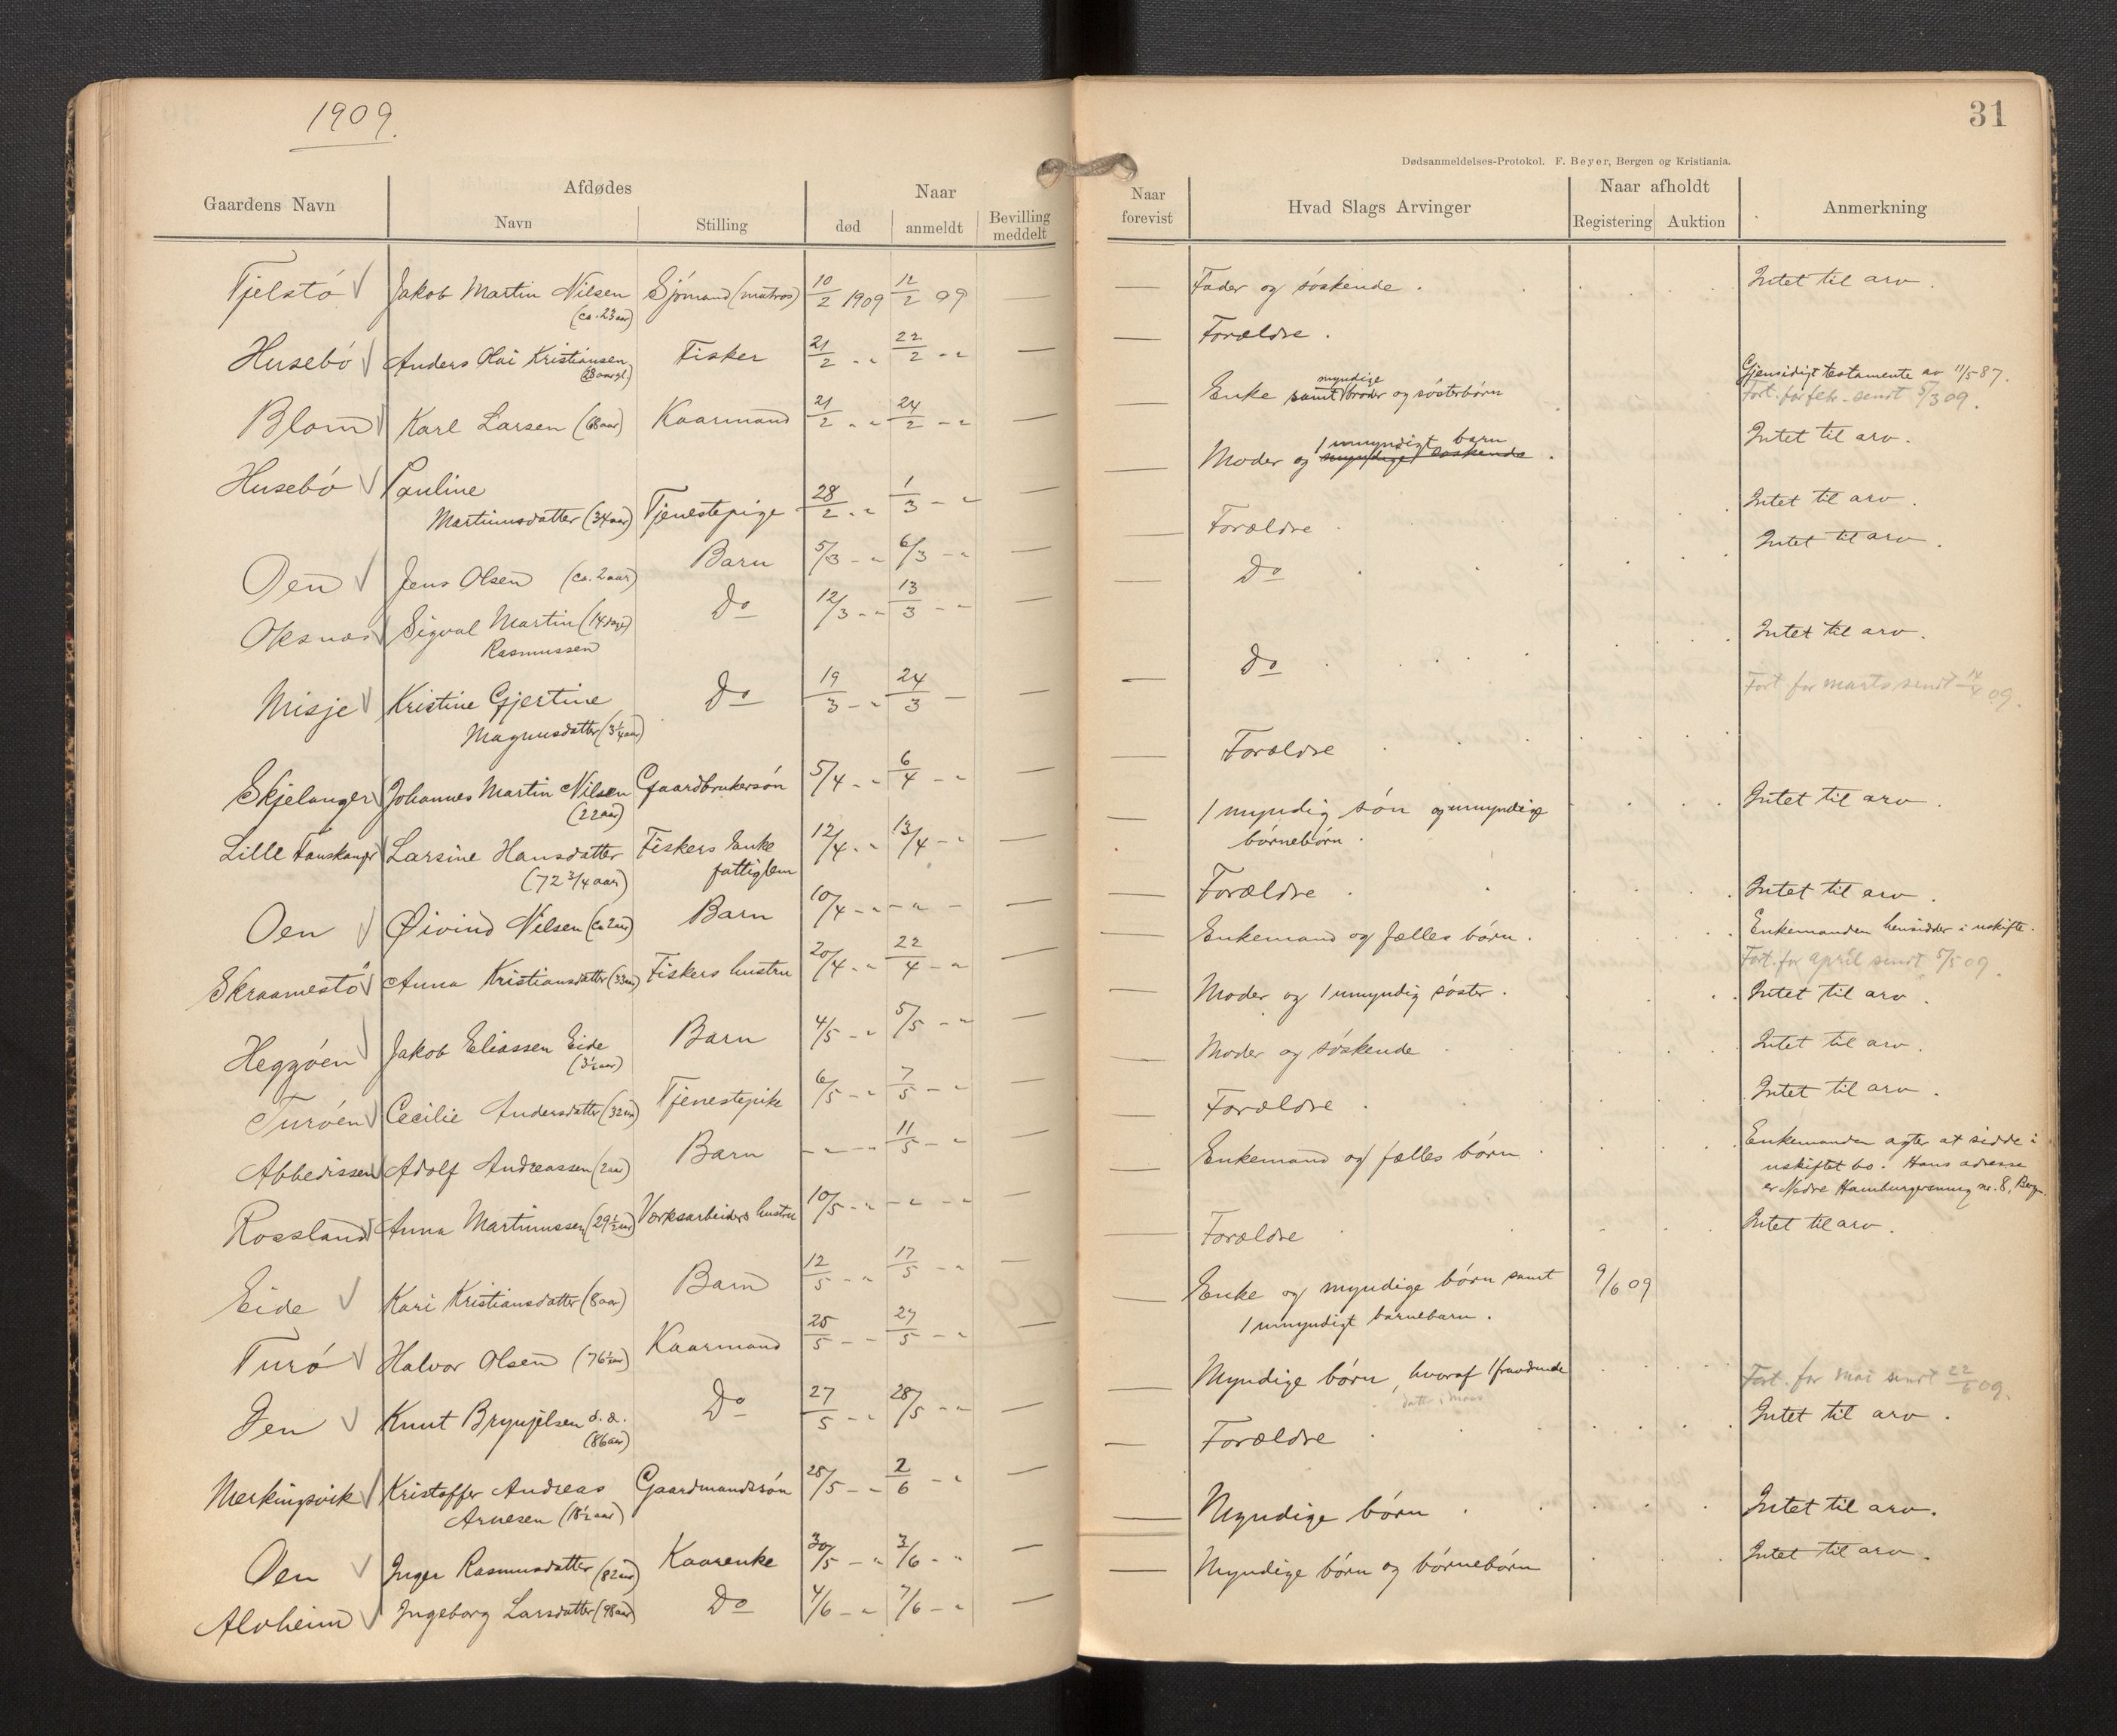 1909.
Gaardens Navn
Afdødes
Navn
Stilling
Naar
død
anmeldt
Bevilling meddelt
Tjelstø Jakob Martin Nilsen Sjømand (matros) 10/2 1909 12/2 09 —
(ca. 23 aar)
Husebø Anders Olai Kristiansen Fisker 21/2 - " 22/2 - " —
(28 aar gl.)
Blom Karl Larsen (68 aar) Kaarmand 21/2 - " 24/2 - " —
Husebø Pauline
Martinusdatter (34 aar) Tjenestepige 28/2 - " 1/3 - " —
Oen Jens Olsen (ca. 2 aar) Barn 5/3 - " 6/3 - " —
Oksnæs Sigval Martin (14 dage) Do 12/3 - " 13/3 - " —
Rasmussen
Misje Kristine Gjertine Do 19/3 - " 24/3 — —
Magnusdatter (3 1/4 aar)
Skjelanger Johannes Martin Nilsen Gaardbrukersøn 5/4 - " 6/4 - " —
(22 aar)
Lille Fauskanger Larsine Hansdatter Fiskers Enke 12/4 - " 13/4 - " —
(72 3/4 aar) fattiglem
Oen Øivind Nilsen (ca 2 aar) Barn 10/4 - " - " - —
Skraamestø Anna Kristiansdatter (33 aar) Fiskers hustru 20/4 - " 22/4 - " —
Heggøen Jakob Eliassen Eide Barn 4/5 - " 5/5 - " —
(3 1/2 aar)
Turøen Cecilie Andersdatter (32 aar) Tjenestepike 6/5 - " 7/5 - " —
Abbedissen Adolf Andreassen (2 aar) Barn - " - " 11/5 - " —
Rossland Anna Martinussen (29 1/2 aar) Værksarbeiders hustru 10/5 - " - " - " —
Eide Kari Kristiansdatter (8 aar) Barn 12/5 - " 17/5 - " —
Turø Halvor Olsen (76 1/2 aar) Kaarmand 25/5 - - 27/5 - " —
Oen Knut Brynjelsen d. æ. Do 27/5 - " 28/5 - " —
(86 aar)
Merkingsvik Kristoffer Andreas Gaardmandssøn 25/5 - " 2/6 - " —
Arnesen (18 1/2 aar)
Oen Inger Rasmusdatter (82 aar) Kaarenke 30/5 - " 3/6 - " —
Alvheim Ingeborg Larsdatter (98 aar) Do 4/6 - " 7/6 - " —
31
Dødsanmeldelses-Protokol. F. Beyer, Bergen og Kristiania.
Naar forevist
Hvad Slags Arvinger
Naar afholdt
Registering
Auktion
Anmerkning
— Fader og søskende . Intet til arv .
— Forældre .
myndige
— Enke samt broder og søsterbørn Gjensidigt testamente av 11/5 87.
Fort. for febr. sendt 5/3 09.
1 umyndigt barn
— Moder og myndige søskende . Intet til arv .
— Forældre Intet til arv .
— Do Intet til arv .
— Do Intet til arv .
Fort. for marts sendt 14/4 09.
— Forældre
— 1 myndig søn og umyndige Intet til arv .
børnebørn .
— Forældre Intet til arv .
— Enkemand og fælles børn . Enkemanden hensidder i uskifte .
Fort. for april sendt 5/5 09.
— Moder og 1 umyndig søster . Intet til arv .
— Moder og søskende Intet til arv .
— Forældre Intet til arv .
— Enkemand og fælles børn Enkemanden agter at sidde i
uskiftet bo. Hans adresse
er Nedre Hamburgersmug nr. 8, Berg.
— Forældre Intet til arv .
— Enke og myndige børn samt 9/6 09
1 umyndigt barnebarn .
— Myndige børn, hvoraf 1 fraværende Fort. for mai sendt 22/6 09.
— Forældre Intet til arv .
— Myndige børn Intet til arv .
— Myndige børn og børnebørn Intet til arv .